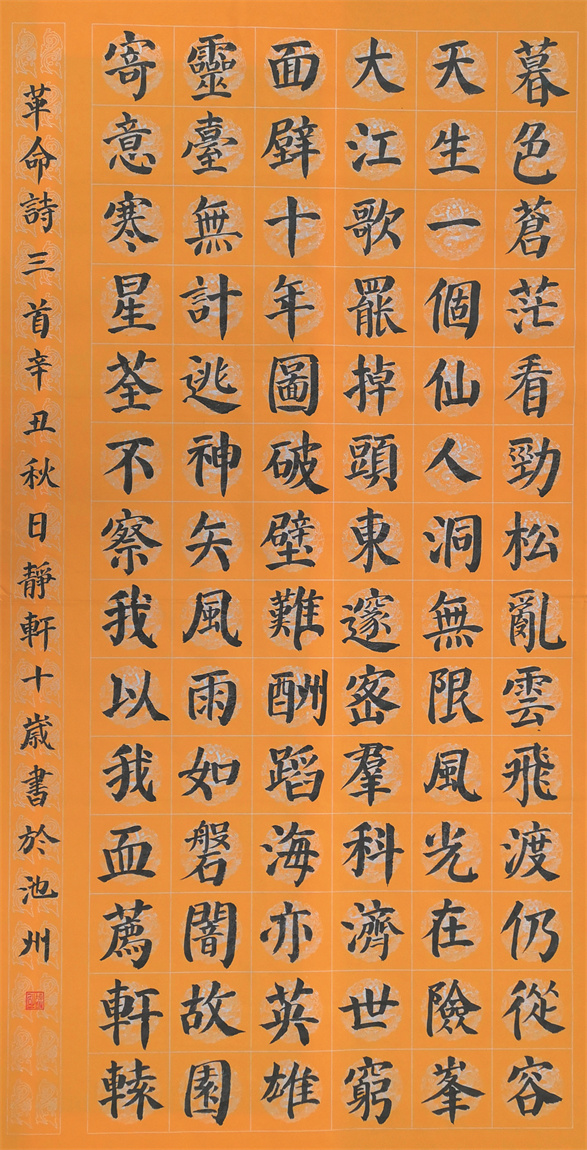 暮色蒼茫看勁松亂雲飛渡仍從容
天生一個仙人洞無限風光在險峯
大江歌罷掉頭東邃密羣科濟世窮
面壁十年圖破壁難酬蹈海亦英雄
靈臺無計逃神矢風雨如磐闇故園
寄意寒星荃不察我以我血薦軒轅
革命詩三首辛丑秋日靜軒十歲書於池州